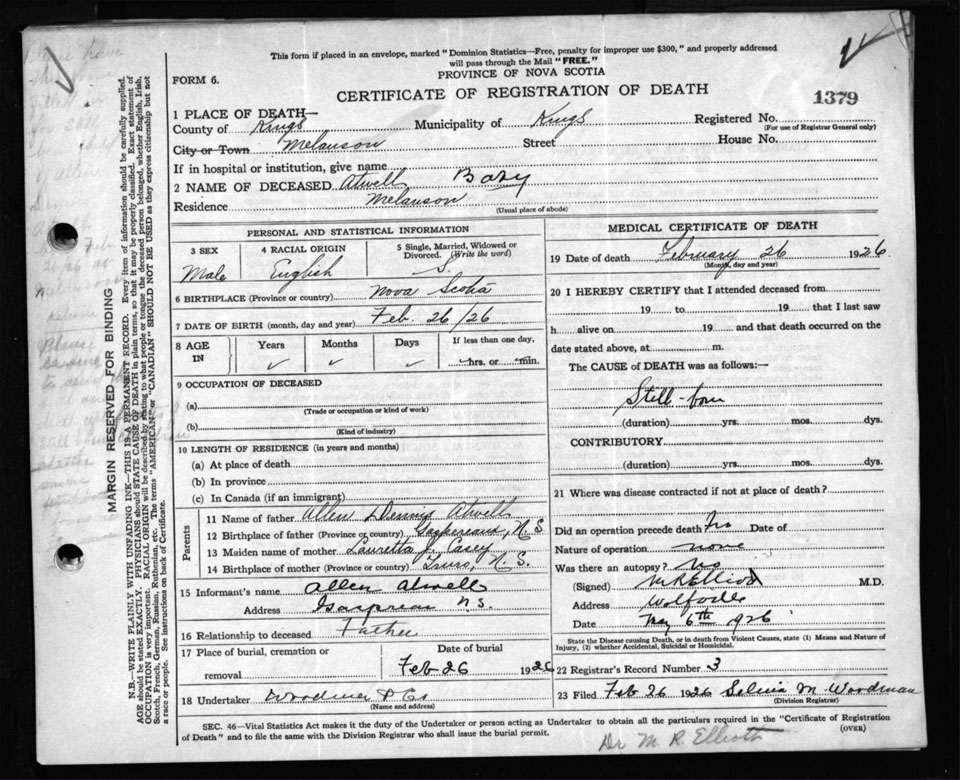 This form if placed in an envelope, marked "Dominion Statistics—Free, penalty for improper use $300," and properly addressed
will pass through the Mail "FREE."
PROVINCE OF NOVA SCOTIA
FORM 6.
CERTIFICATE OF REGISTRATION OF DEATH
1379
1 PLACE OF DEATH—
County of Kings Municipality of Kings Registered No.
(For use of Registrar General only)
City or Town Melanson Street House No.
If in hospital or institution, give name
2 NAME OF DECEASED Atwell, Baby
Residence Melanson
(Usual place of abode)
PERSONAL AND STATISTICAL INFORMATION
3 SEX 4 RACIAL ORIGIN 5 Single, Married, Widowed or Divorced. (Write the word)
Male English S.
6 BIRTHPLACE (Province or country) Nova Scotia
7 DATE OF BIRTH (month, day and year) Feb. 26/26
8 AGE IN Years Months Days If less than one day,
hrs. or min.
9 OCCUPATION OF DECEASED
(a)
(Trade or occupation or kind of work)
(b)
(Kind of industry)
10 LENGTH OF RESIDENCE (in years and months)
(a) At place of death
(b) In province
(c) In Canada (if an immigrant)
Parents
11 Name of father Allen Atwell
12 Birthplace of father (Province or country) Gaspereaux, N.S
13 Maiden name of mother Lauretta J. Casey
14 Birthplace of mother (Province or country) Truro, N.S.
15 Informant's name Allen Atwell
Address N.S.
16 Relationship to deceased Father
17 Place of burial, cremation or removal Date of burial
Feb 26 1926
18 Undertaker Woodman & Co
(Name and address)
MEDICAL CERTIFICATE OF DEATH
19 Date of death February 26 1926
(Month, day and year)
20 I HEREBY CERTIFY that I attended deceased from
19 to 19 that I last saw
h alive on 19 and that death occurred on the
date stated above, at m.
The CAUSE of DEATH was as follows:—
Still-born
(duration) yrs. mos. dys.
CONTRIBUTORY
(duration) yrs. mos. dys.
21 Where was disease contracted if not at place of death?
Did an operation precede death? No Date of
Nature of operation none
Was there an autopsy? No
(Signed) M R Elliott M.D.
Address Wolfville
Date May 6th 1926
State the Disease causing Death, or in death from Violent Causes, state (1) Means and Nature of Injury, (2) whether Accidental, Suicidal or Homicidal.
22 Registrar's Record Number 3
23 Filed Feb 26 1926 Selina M. Woodman
(Division Registrar)
SEC. 46—Vital Statistics Act makes it the duty of the Undertaker or person acting as Undertaker to obtain all the particulars required in the "Certificate of Registration
of Death" and to file the same with the Division Registrar who shall issue the burial permit.
(OVER)
Dr M. R. Elliott
MARGIN RESERVED FOR BINDING
N.B.—WRITE PLAINLY WITH UNFADING INK—THIS IS A PERMANENT RECORD. Every item of information should be carefully supplied.
AGE should be stated EXACTLY. PHYSICIANS should STATE CAUSE OF DEATH in plain terms, so that it may be properly classified. Exact statement of
OCCUPATION is very important. RACIAL ORIGIN will be described by stating to what people or tongue the deceased person belonged, whether English, Irish,
Scotch, French, German, Russian, Ruthenian, etc. The terms "AMERICAN" or "CANADIAN" SHOULD NOT BE USED as they express citizenship but not
a race or people. See instructions on back of Certificate.